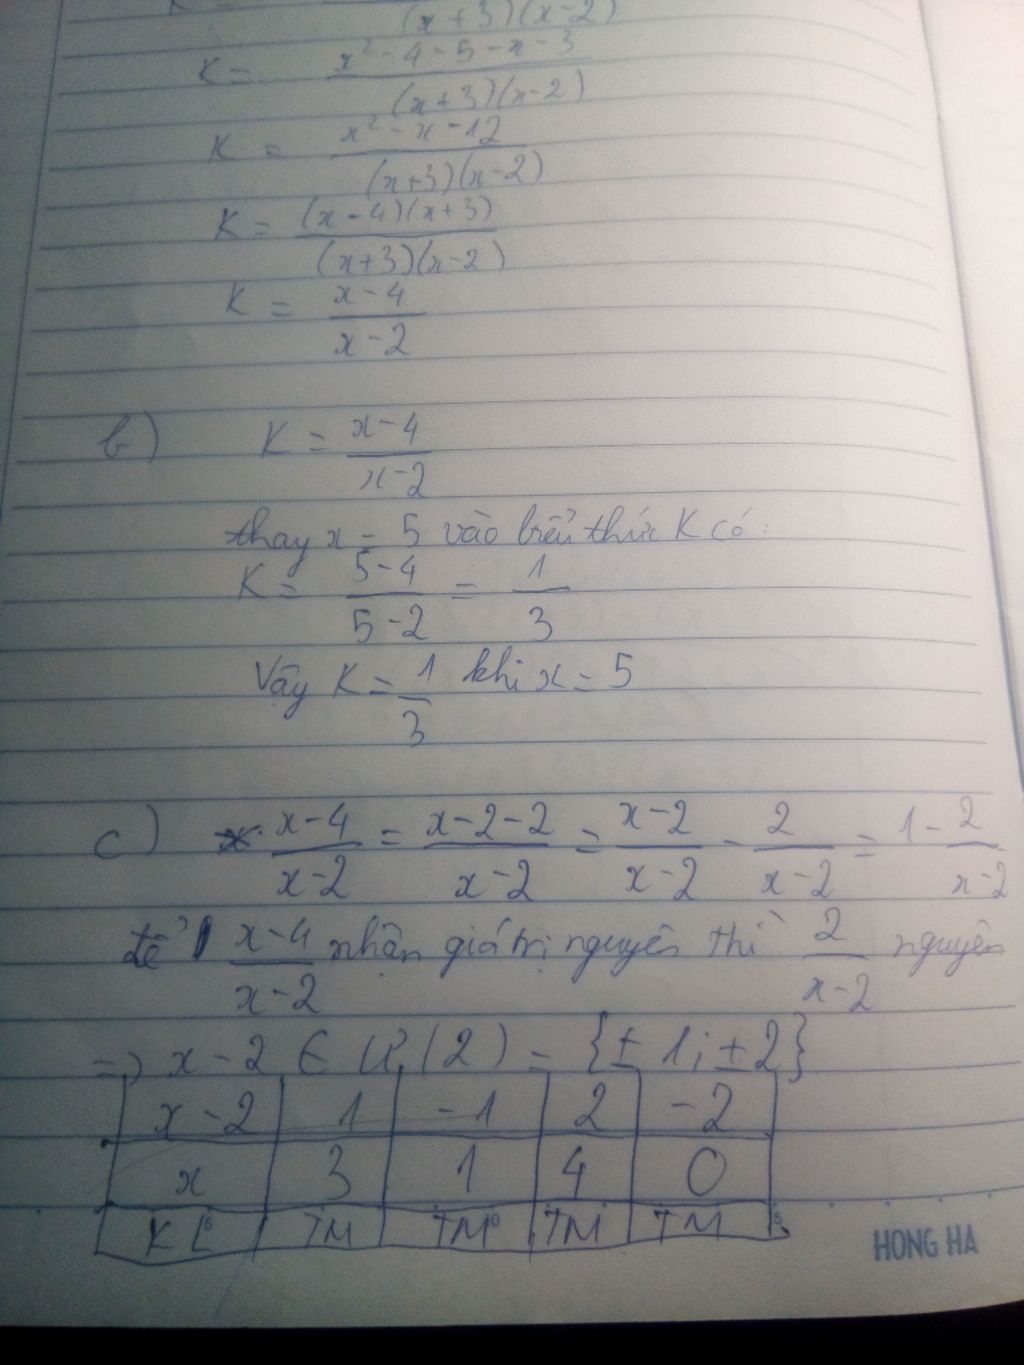 (x+3)(x-2)
K = x² - 4 - 5 - x - 3
(x+3)(x-2)
K = x² - x - 12
(x+3)(x-2)
K = (x-4)(x+3)
(x+3)(x-2)
K = x-4
x-2
b) K = x-4
x-2
thay x = 5 vào biểu thức K có:
K = 5-4 = 1
5-2 3
Vậy K = 1 khi x = 5
3
c) x-4 = x-2-2 = x-2 - 2 = 1 - 2
x-2 x-2 x-2 x-2 x-2
để x-4 nhận giá trị nguyên thì 2 nguyên
x-2 x-2
=> x-2 ∈ Ư(2) = {±1; ±2}
x-2 1 -1 2 -2
x 3 1 4 0
KL TM TM TM TM
HONG HA